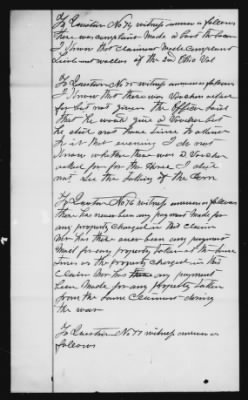 To Question No 74 witness answers as follows
there was complaint made
I know that claimant made complaint
of the 2nd Ohio Vol
To Question No 75 witness answers as follows
I know that there was Voucher asked
for but not given the Officer said
that he would give a Voucher but
he did not have time to
it that evening I do not
know whether there was a Voucher
asked for for the Horse I did
not see the taking of the Corn
To Question No 76 witness answers as follows
there has never been any payment made for
any property charged in this claim
Nor has there ever been any payment
made for any property taken at the
times or the property charged in this
claim Nor has there any payment
been made for any property taken
from the same Claimant during
the war
To Question No 77 witness answers as
follows